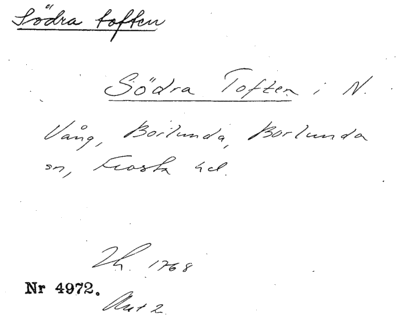 Södra toften
Södra Toften i N.
Vång, Borlunda, Borlunda
sn, Frosta hd.
Lh. 1768
Nr 4972.
Akt 2